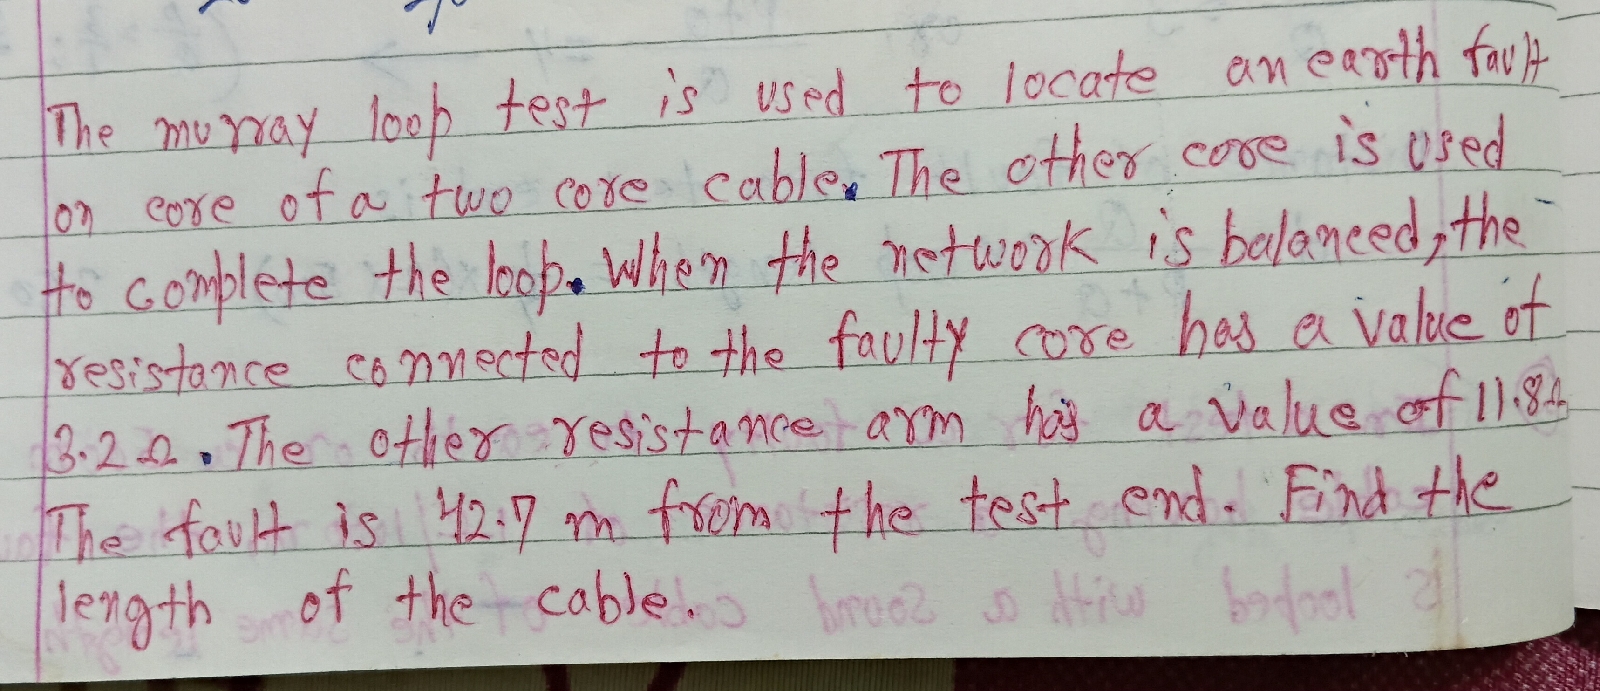 The murray loop test is used to locate an earth fault
on core of a two core cable. The other core is used
to complete the loop. When the network is balanced, the
resistance connected to the faulty core has a value of
3.2 Ω. The other resistance arm has a value of 11.8Ω
The fault is 42.7 m from the test end. Find the
length of the cable.